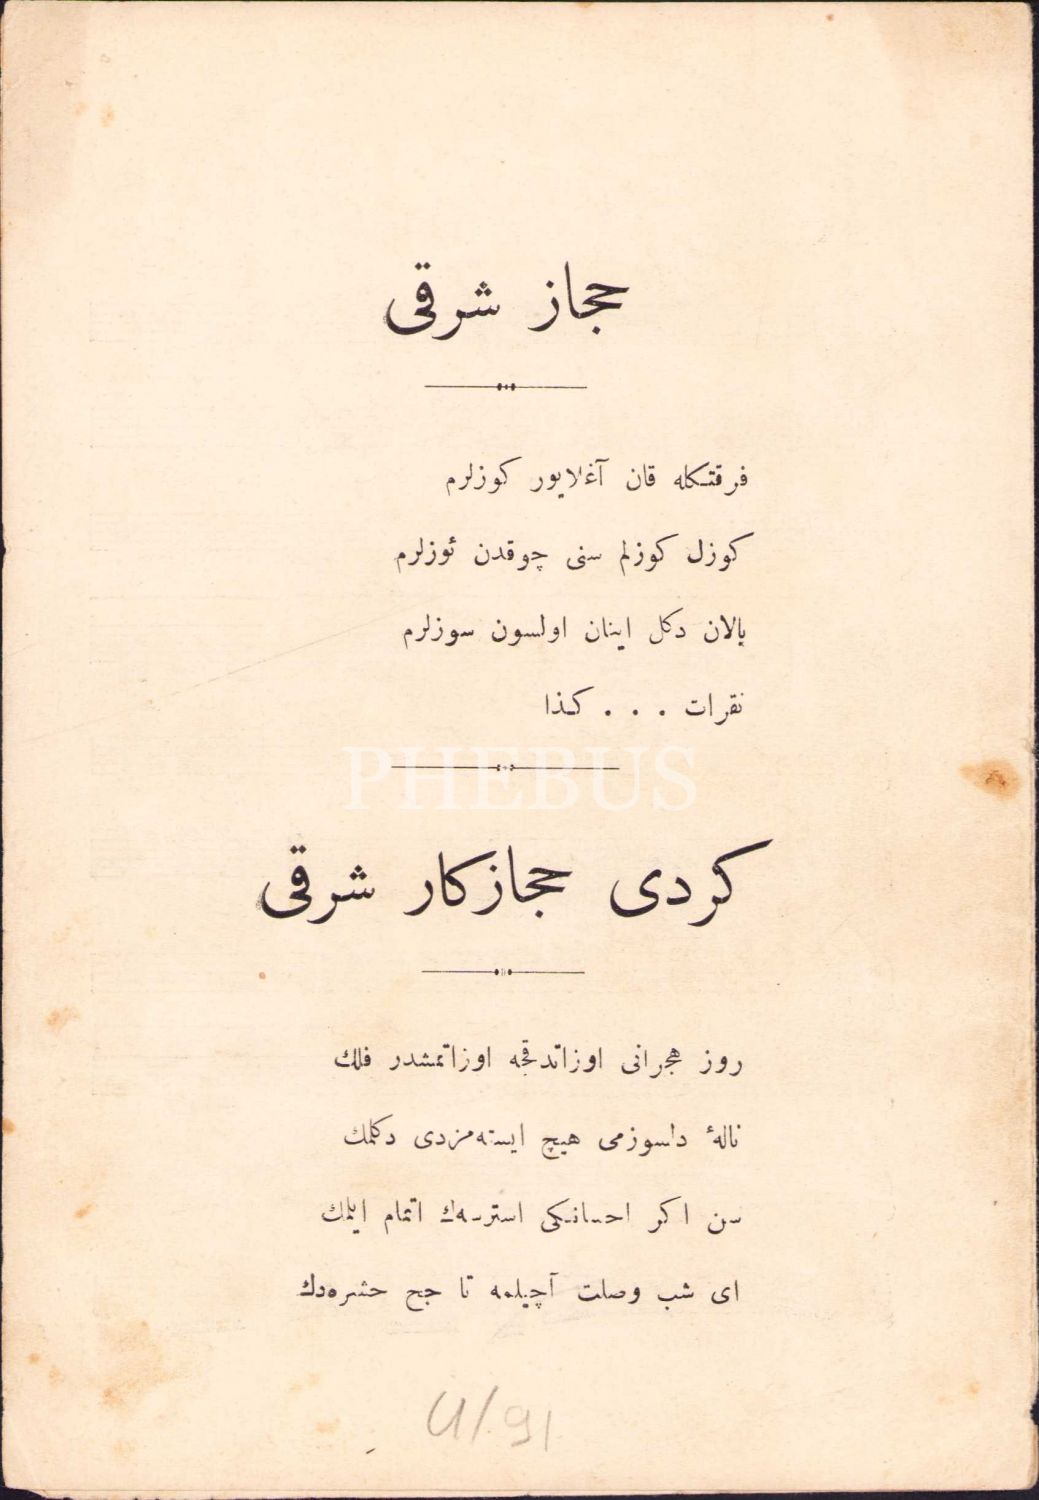 حجاز شرقی
فرقتكله قان آغلايور كوزلرم
كوزل كوزلم سنی چوقدن ئوزلرم
يالان دكل اينان اولسون سوزلرم
نقرات . . . كذا
PHEBUS
كردی حجازكار شرقی
روز هجرانی اوزاتدقجه اوزاتمشدر فلك
نالهٔ دلسوزمی هيچ ايسته‌مزدی دكلمك
سن اكر احسانكی استرسه‌ك اتمام ايلمك
ای شب وصلت آچيلمه تا حشره‌دك
91